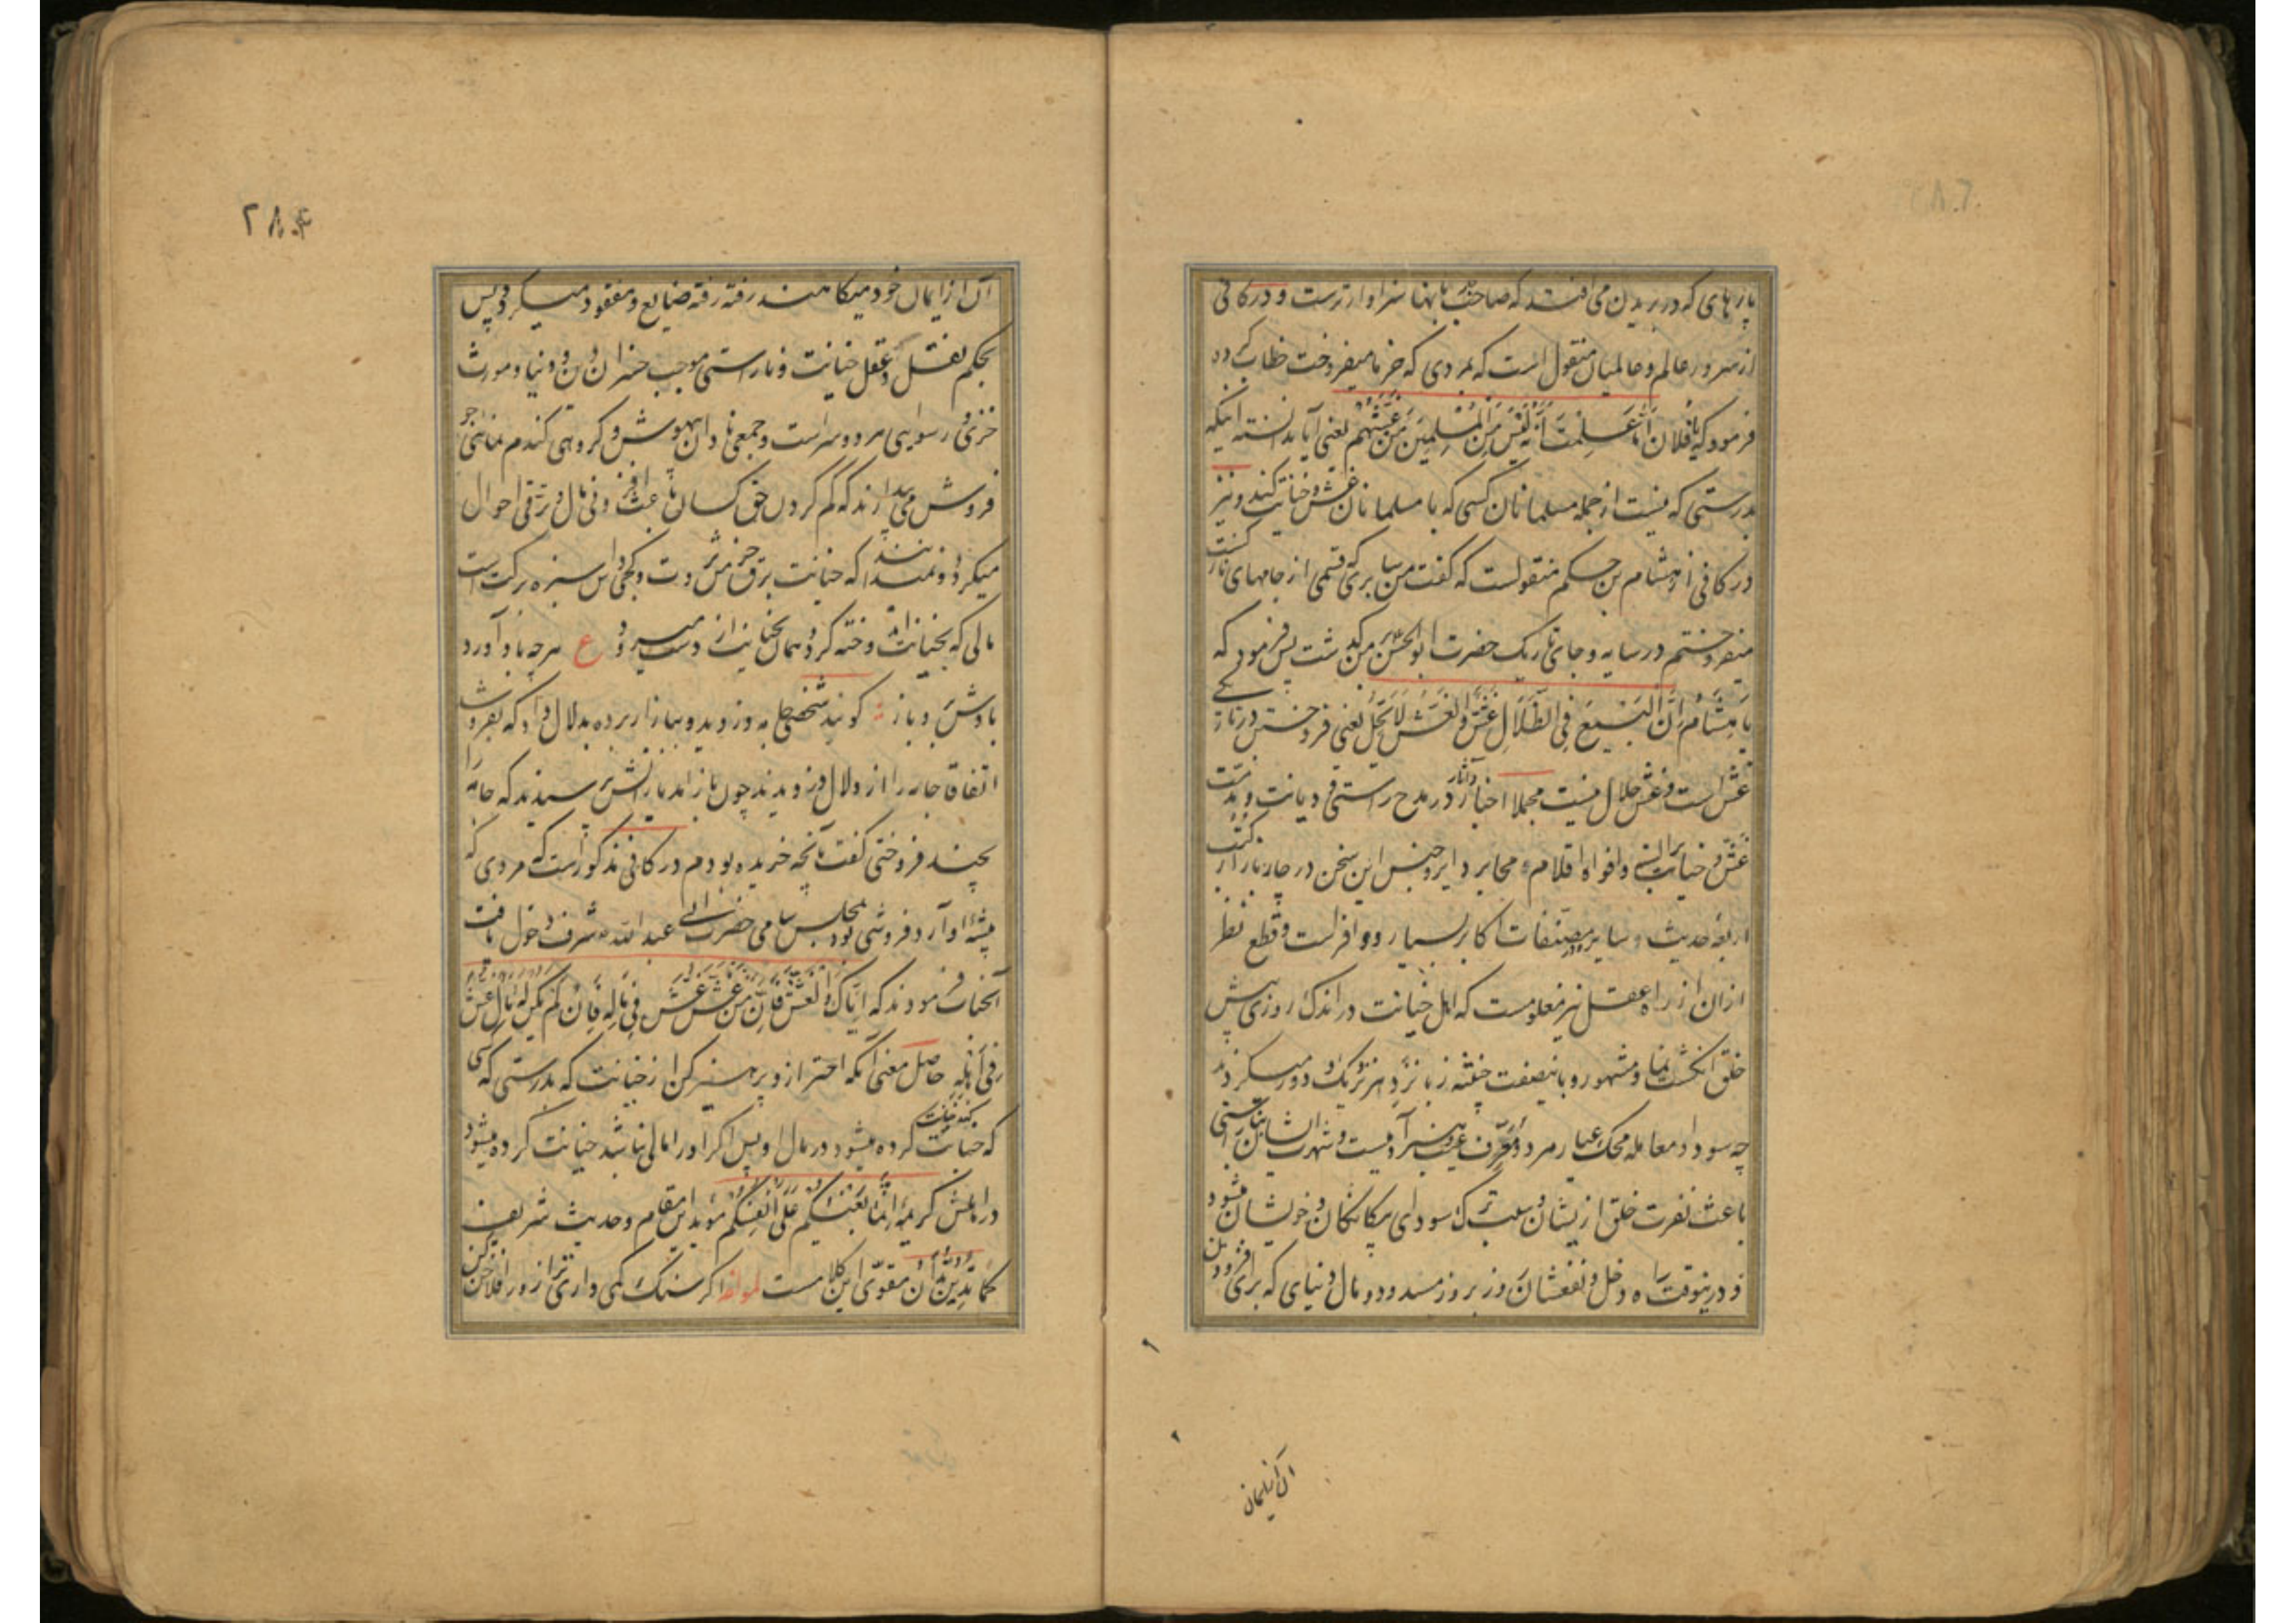 پارهای که در بریدن می افتد که صاحب بآنها سزاوارترست و در کافی
از سرور عالم و عالمیان منقول است که بمردی که خرما میفروخت خطاب کرده
فرمود که یا فلان اما علمت انه لیس من المسلمین من غشهم یعنی آیا ندانسته اینکه
بدرستی که نیست از جمله مسلمانان کسی که با مسلمانان غش و خیانت کند و نیز
در کافی از هشام بن حکم منقولست که گفت من سابری که قسمی از جامهای نازک است
میفروختم در سایه و جای تاریک حضرت ابوالحسن بر من گذشت پس فرمود که
یا هشام ان البیع فی الظلال غش و الغش لا یحل یعنی فروختن در تاریکی
غش است و غش حلال نیست مجملا اخبار و آثار در مدح راستی و دیانت و مذمت
غش و خیانت بر السنه و افواه اقلام و محابر دایر و جنس این سخن در چار بازار کتب
اربعه حدیث و سایر مصنفات اکابر بسیار و وافرست و قطع نظر
از ان از راه عقل نیز معلومست که اهل خیانت در اندک روزی پیش
خلق انگشت نما و مشهور و باینصفت خفته زبانزد هر نزدیک و دور میکردند
چه سودا و معامله محک عیار مرد و معرف عیب و هنر آدمیست و شهرت ایشان بناراستی
باعث نفرت خلق از یشان و سبب ترک سودای بیکانکان و خویشان میشود
و درینوقت راه دخل و نفعشان روز بروز مسدود و مال دنیای که برای افزودن
آن ایمان
۲۸۴
آن از ایمان خود میکاهند رفته رفته ضایع و مفقود میکردد پس
بحکم نقل و عقل خیانت و ناراستی موجب خسران دین و دنیا و مورث
خزی و رسوایی هر دو سراست و جمعی نادان بیهوش و کروهی کندم نمای جو
فروش می پندارند که کم کردن حق کسان باعث افزونی مال و ترقی احوال
میکردد و نمیدانند که خیانت برق خرمن ثروت و کجی داس سبزه برکت است
مالی که بخیانت اندوخته کردد همان بخیانت از دست میرود ع هر چه باد آورد
بادش برد باز گویند شخصی جامه دزدید و ببازار برده بدلال داد که بفروشد
اتفاقا جامه را از دلال دزدیدند چون باز آمد یارانش پرسیدند که جامه را
بچند فروختی گفت بآنچه خریده بودم در کافی مذکور است که مردی که
پیشه او آرد فروشی بود بمجلس سامی حضرت ابی عبد الله شرف دخول یافت
آنجناب فرمودند که ایاک و الغش فان من غش غش فی ماله فان لم یکن له مال غش
فی اهله حاصل معنی آنکه احتراز و پرهیز کن از خیانت که بدرستی که کسی
که خیانت کند خیانت کرده میشود در مال او پس اکر او را مالی نباشد خیانت کرده میشود
در اهلش کریمه انما بغیکم علی انفسکم مؤید این مقام و حدیث شریف
کما تدین تدان مقوی این کلامست لمؤلفه اکر سنک کمی داری ترازو را فلاخن کن